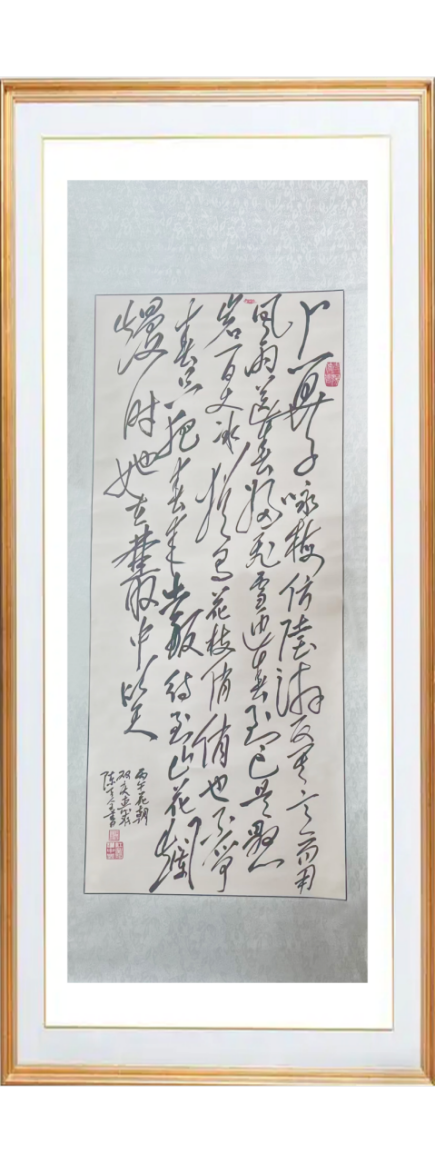 卜算子咏梅仿陸游反其意而用
风雨送春归飛雪迎春到已是懸
岩百丈冰猶有花枝俏俏也不爭
春只把春来報待到山花爛
熳时她在叢中笑
丙午花朝
陈書